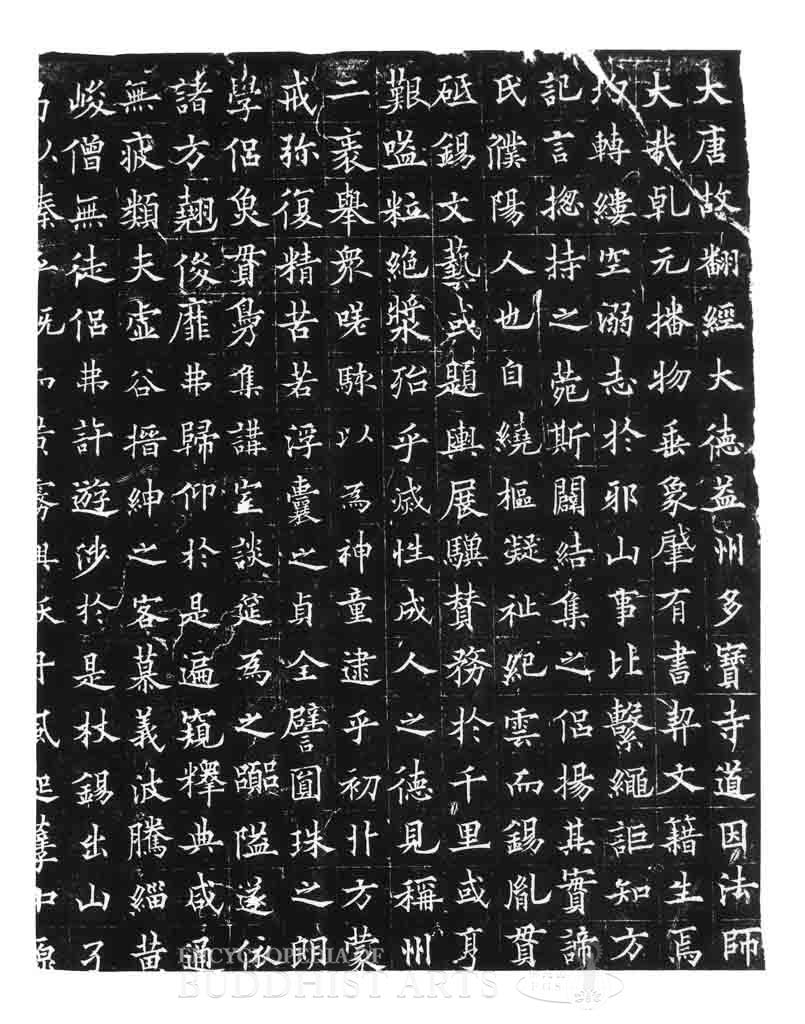 大唐故翻經大德益州多寶寺道因法師
大哉乹元播物垂象肇有書契文籍生焉
轉縷空溺志於邪山事比繫繩詎知方
記言揔持之菀斯闢結集之侶揚其實諦
氏濮陽人也自繞樞凝祉紀雲而錫胤貫
砥錫文藝或題輿展驥贊務於千里或享
艱嗌粒絕漿殆乎滅性成人之德見稱州
二袠舉眾嗟駭以為神童逮乎初卝方蒙
戒弥復精苦若浮囊之貞全譬圓珠之朗
學侶魚貫鳧集講室談筵為之嚻隘遂依
諸方翹俊靡弗歸仰於是遍窺釋典咸通
無疲類夫虛谷搢紳之客慕義波騰緇黃
峻僧無徒侶弗許遊涉於是杖錫出山了
ENCYCLOPEDIA OF
BUDDHIST ARTS